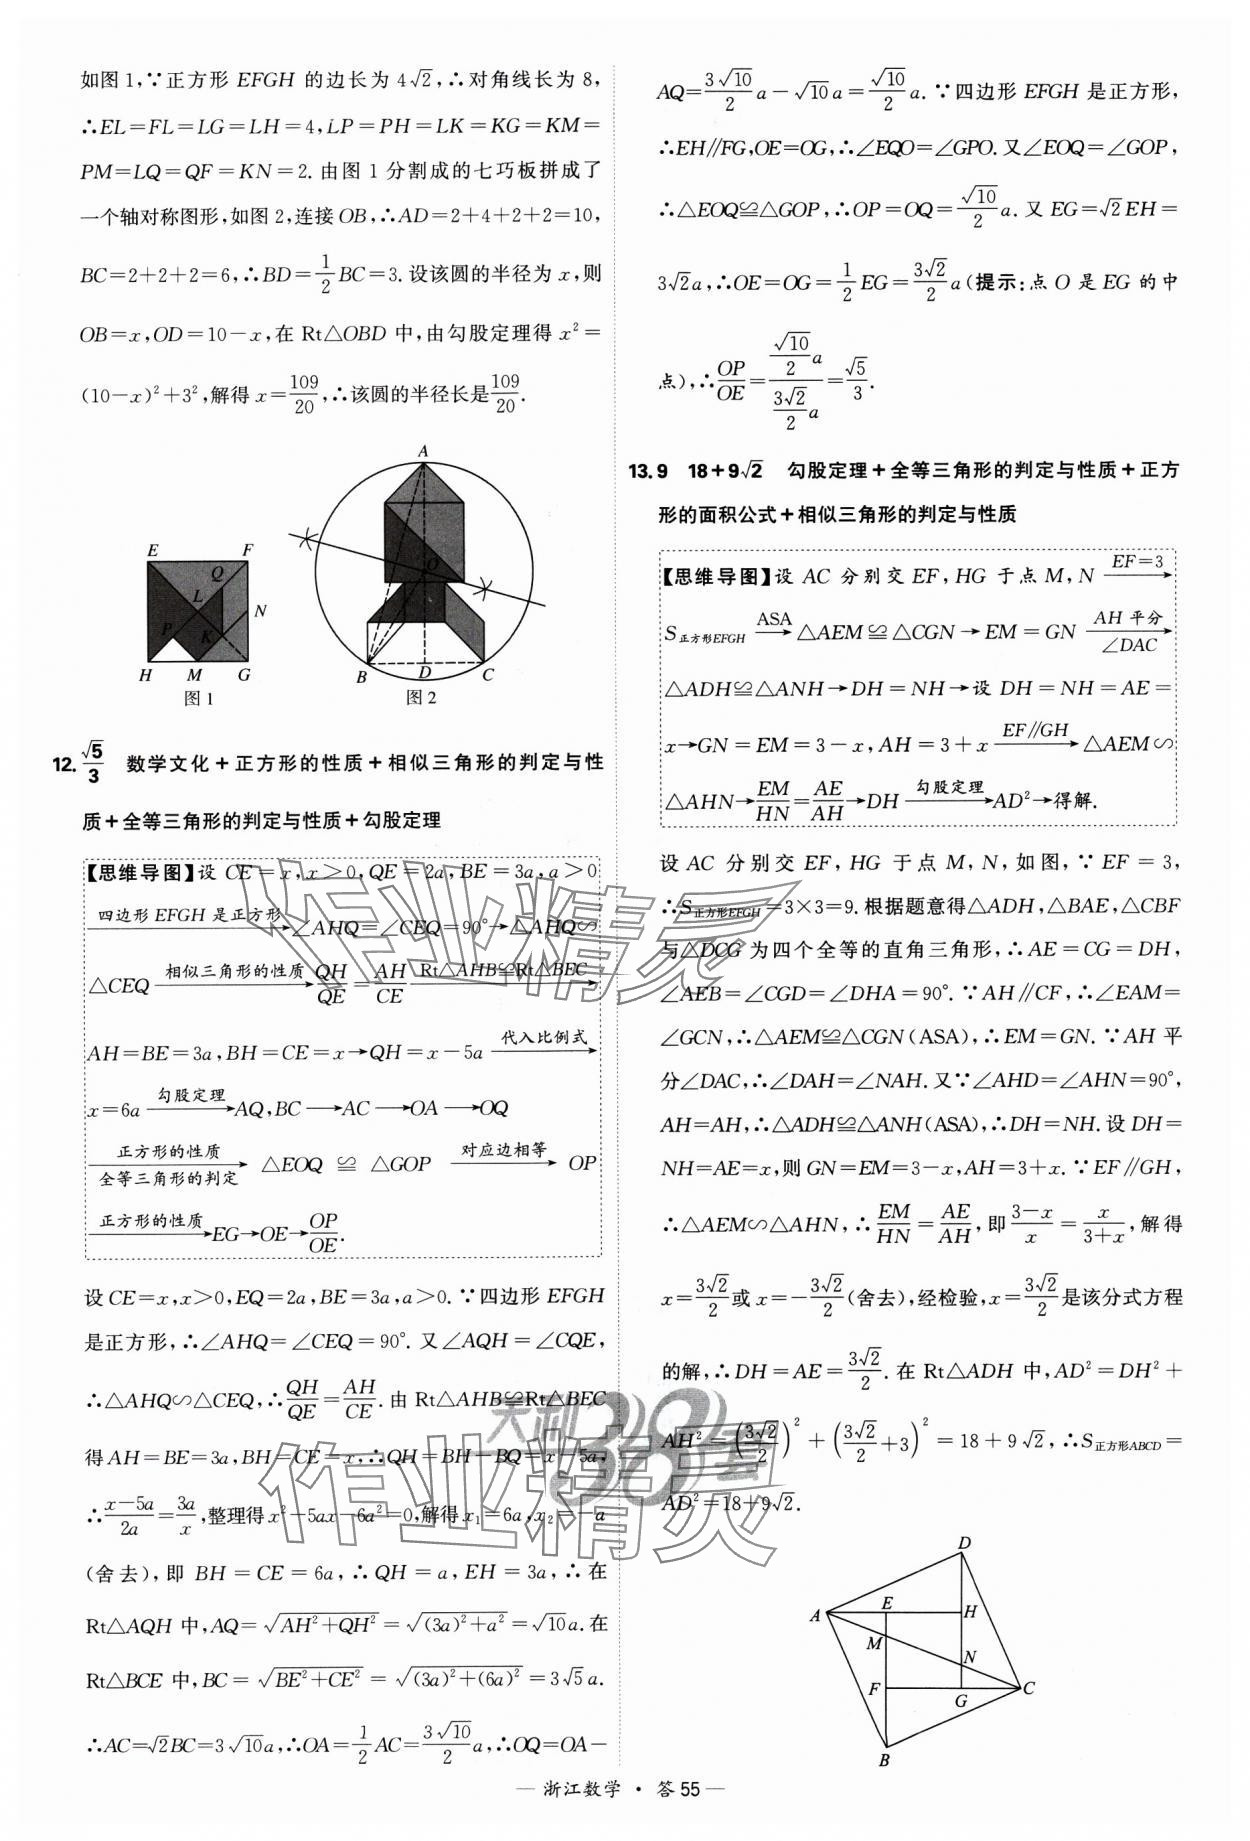 如图1,∵正方形 EFGH 的边长为 4√2,∴对角线长为 8,
∴EL=FL=LG=LH=4,LP=PH=LK=KG=KM=
PM=LQ=QF=KN=2. 由图 1 分割成的七巧板拼成了
一个轴对称图形,如图 2,连接 OB,∴AD=2+4+2+2=10,
BC=2+2+2=6,∴BD=1/2BC=3. 设该圆的半径为 x,则
OB=x,OD=10-x,在 Rt△OBD 中,由勾股定理得 x²=
(10-x)²+3²,解得 x=109/20,∴该圆的半径长是109/20.
E F Q L N P K H M G
图 1
A O B D C
图 2
12. √5/3 数学文化+正方形的性质+相似三角形的判定与性
质+全等三角形的判定与性质+勾股定理
【思维导图】设 CE=x,x>0,QE=2a,BE=3a,a>0
四边形 EFGH 是正方形→∠AHQ=∠CEQ=90°→△AHQ∽
△CEQ 相似三角形的性质→QH/QE=AH/CE Rt△AHB≌Rt△BEC→
AH=BE=3a,BH=CE=x→QH=x-5a 代入比例式→
x=6a 勾股定理→AQ,BC→AC→OA→OQ
正方形的性质 全等三角形的判定→△EOQ≌△GOP 对应边相等→OP
正方形的性质→EG→OE→OP/OE.
设 CE=x,x>0,EQ=2a,BE=3a,a>0. ∵四边形 EFGH
是正方形,∴∠AHQ=∠CEQ=90°. 又∠AQH=∠CQE,
∴△AHQ∽△CEQ,∴QH/QE=AH/CE. 由 Rt△AHB≌Rt△BEC
得 AH=BE=3a,BH=CE=x,∴QH=BH-BQ=x-5a,
∴(x-5a)/2a=3a/x,整理得 x²-5ax-6a²=0,解得 x₁=6a,x₂=-a
(舍去),即 BH=CE=6a,∴QH=a,EH=3a,∴在
Rt△AQH 中,AQ=√(AH²+QH²)=√((3a)²+a²)=√10a. 在
Rt△BCE 中,BC=√(BE²+CE²)=√((3a)²+(6a)²)=3√5a.
∴AC=√2BC=3√10a,∴OA=1/2AC=3√10/2a,∴OQ=OA-
AQ=3√10/2a-√10a=√10/2a. ∵四边形 EFGH 是正方形,
∴EH∥FG,OE=OG,∴∠EQO=∠GPO. 又∠EOQ=∠GOP,
∴△EOQ≌△GOP,∴OP=OQ=√10/2a. 又 EG=√2EH=
3√2a,∴OE=OG=1/2EG=3√2/2a(提示:点 O 是 EG 的中
点),∴OP/OE=(√10/2a)/(3√2/2a)=√5/3.
13. 9 18+9√2 勾股定理+全等三角形的判定与性质+正方
形的面积公式+相似三角形的判定与性质
【思维导图】设 AC 分别交 EF,HG 于点 M,N EF=3→
S正方形EFGH ASA→△AEM≌△CGN→EM=GN AH 平分∠DAC→
△ADH≌△ANH→DH=NH→设 DH=NH=AE=
x→GN=EM=3-x,AH=3+x EF∥GH→△AEM∽
△AHN→EM/HN=AE/AH→DH 勾股定理→AD²→得解.
设 AC 分别交 EF,HG 于点 M,N,如图,∵EF=3,
∴S正方形EFGH=3×3=9. 根据题意得△ADH,△BAE,△CBF
与△DCG 为四个全等的直角三角形,∴AE=CG=DH,
∠AEB=∠CGD=∠DHA=90°. ∵AH∥CF,∴∠EAM=
∠GCN,∴△AEM≌△CGN(ASA),∴EM=GN. ∵AH 平
分∠DAC,∴∠DAH=∠NAH. 又∵∠AHD=∠AHN=90°,
AH=AH,∴△ADH≌△ANH(ASA),∴DH=NH. 设 DH=
NH=AE=x,则 GN=EM=3-x,AH=3+x. ∵EF∥GH,
∴△AEM∽△AHN,∴EM/HN=AE/AH,即(3-x)/x=x/(3+x),解得
x=3√2/2或 x=-3√2/2(舍去),经检验,x=3√2/2是该分式方程
的解,∴DH=AE=3√2/2. 在 Rt△ADH 中,AD²=DH²+
AH²=(3√2/2)²+(3√2/2+3)²=18+9√2,∴S正方形ABCD=
AD²=18+9√2.
D A E H M N F G C B
作业精灵
天利38套
作业精灵
— 浙江数学 · 答 55 —